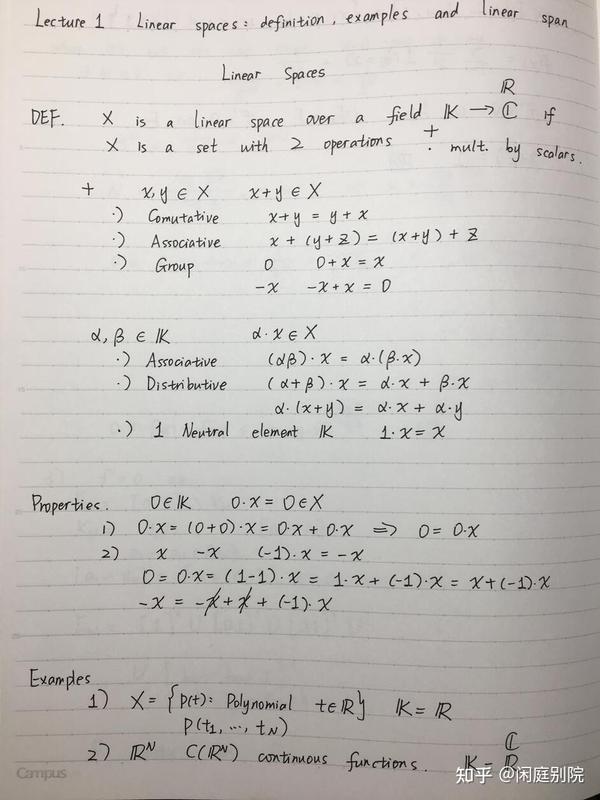 Lecture 1 Linear spaces: definition, examples and linear span
Linear Spaces
ℝ
DEF. X is a linear space over a field 𝕂 → ℂ if
X is a set with 2 operations + · mult. by scalars.
+ x, y ∈ X x+y ∈ X
·) Comutative x+y = y+x
·) Associative x + (y+z) = (x+y) + z
·) Group 0 0+x = x
-x -x+x = 0
α, β ∈ 𝕂 α·x ∈ X
·) Associative (αβ)·x = α·(β·x)
·) Distributive (α+β)·x = α·x + β·x
α·(x+y) = α·x + α·y
·) 1 Neutral element 𝕂 1·x = x
Properties. 0∈𝕂 0·x = 0∈X
1) 0·x = (0+0)·x = 0·x + 0·x ⇒ 0 = 0·x
2) x -x (-1)·x = -x
0 = 0·x = (1-1)·x = 1·x + (-1)·x = x+(-1)·x
-x = -x + x + (-1)·x
Examples
1) X = {p(t): Polynomial t∈ℝ} 𝕂 = ℝ
P(t₁, ..., t_N)
2) ℝᴺ C(ℝᴺ) continuous functions. 𝕂 = ℂ ℝ
Campus
知乎 @闲庭别院